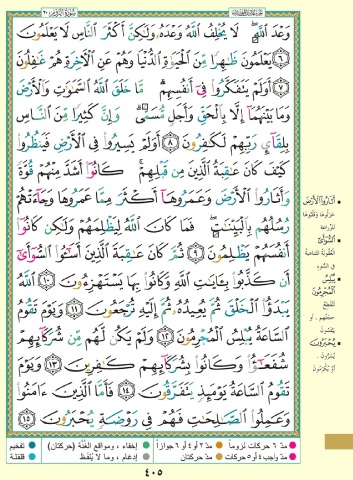 سُورَةُ الرُّومِ ٣٠
وَعْدَ ٱللَّهِۖ لَا يُخْلِفُ ٱللَّهُ وَعْدَهُۥ وَلَٰكِنَّ أَكْثَرَ ٱلنَّاسِ لَا يَعْلَمُونَ
٦ يَعْلَمُونَ ظَٰهِرًا مِّنَ ٱلْحَيَوٰةِ ٱلدُّنْيَا وَهُمْ عَنِ ٱلْءَاخِرَةِ هُمْ غَٰفِلُونَ
٧ أَوَلَمْ يَتَفَكَّرُوا۟ فِىٓ أَنفُسِهِمۗ مَّا خَلَقَ ٱللَّهُ ٱلسَّمَٰوَٰتِ وَٱلْأَرْضَ
وَمَا بَيْنَهُمَآ إِلَّا بِٱلْحَقِّ وَأَجَلٍ مُّسَمًّىۗ وَإِنَّ كَثِيرًا مِّنَ ٱلنَّاسِ
بِلِقَآئِ رَبِّهِمْ لَكَٰفِرُونَ ٨ أَوَلَمْ يَسِيرُوا۟ فِى ٱلْأَرْضِ فَيَنظُرُوا۟
كَيْفَ كَانَ عَٰقِبَةُ ٱلَّذِينَ مِن قَبْلِهِمْۚ كَانُوٓا۟ أَشَدَّ مِنْهُمْ قُوَّةً
وَأَثَارُوا۟ ٱلْأَرْضَ وَعَمَرُوهَآ أَكْثَرَ مِمَّا عَمَرُوهَا وَجَآءَتْهُمْ
رُسُلُهُم بِٱلْبَيِّنَٰتِۖ فَمَا كَانَ ٱللَّهُ لِيَظْلِمَهُمْ وَلَٰكِن كَانُوٓا۟
أَنفُسَهُمْ يَظْلِمُونَ ٩ ثُمَّ كَانَ عَٰقِبَةَ ٱلَّذِينَ أَسَٰٓـُٔوا۟ ٱلسُّوٓأَىٰٓ
أَن كَذَّبُوا۟ بِـَٔايَٰتِ ٱللَّهِ وَكَانُوا۟ بِهَا يَسْتَهْزِءُونَ ١٠ ٱللَّهُ
يَبْدَؤُا۟ ٱلْخَلْقَ ثُمَّ يُعِيدُهُۥ ثُمَّ إِلَيْهِ تُرْجَعُونَ ١١ وَيَوْمَ تَقُومُ
ٱلسَّاعَةُ يُبْلِسُ ٱلْمُجْرِمُونَ ١٢ وَلَمْ يَكُن لَّهُم مِّن شُرَكَآئِهِمْ
شُفَعَٰٓؤُا۟ وَكَانُوا۟ بِشُرَكَآئِهِمْ كَٰفِرِينَ ١٣ وَيَوْمَ
تَقُومُ ٱلسَّاعَةُ يَوْمَئِذٍ يَتَفَرَّقُونَ ١٤ فَأَمَّا ٱلَّذِينَ ءَامَنُوا۟
وَعَمِلُوا۟ ٱلصَّٰلِحَٰتِ فَهُمْ فِى رَوْضَةٍ يُحْبَرُونَ ١٥
أَثَارُوا الْأَرْضَ
حَرَثُوهَا وَقَلَبُوهَا
لِلزِّرَاعَةِ
السُّوأَى
يُبْلِسُ
الْمُجْرِمُونَ
يُحْبَرُونَ
مدّ ٦ حركات لزوماً مدّ ٢ أو ٤ أو ٦ جوازاً إخفاء، ومواقع الغُنَّة (حركتان) تفخيم
مدّ واجب ٤ أو ٥ حركات مدّ حركتان إدغام، وما لا يُلفَظ قلقلة
٤٠٥